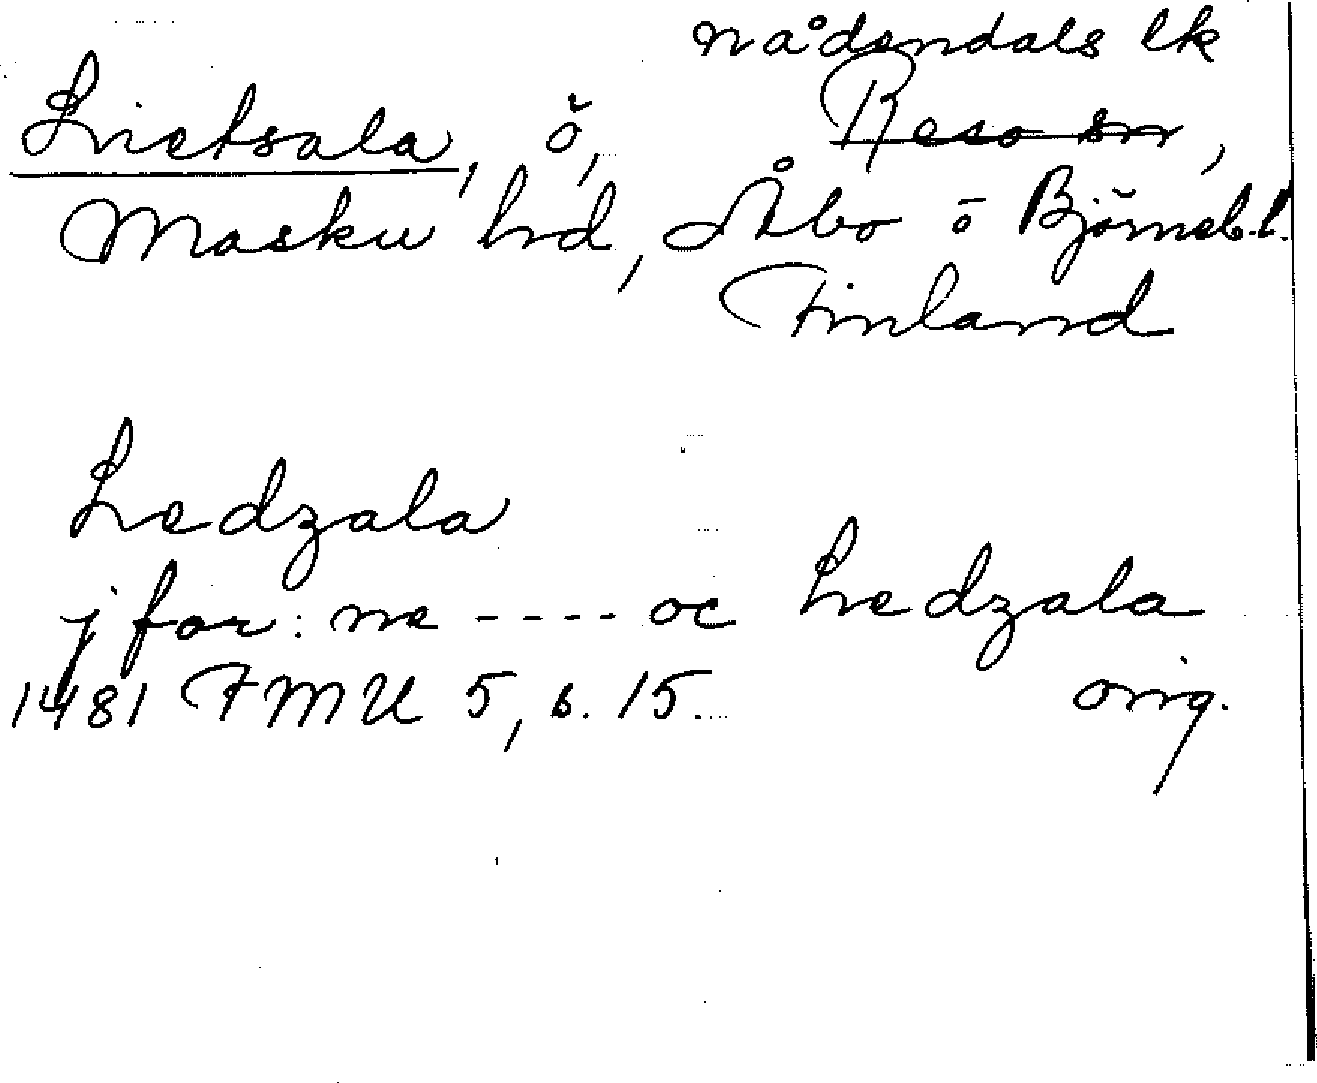 Nådendals lk
Lietsala, ö, Reso sn,
Masku hd, Åbo o Björneb.l.
Finland
Ledzala
j for: ne ---- oc Ledzala
1481 FMU 5, s. 15. orig.